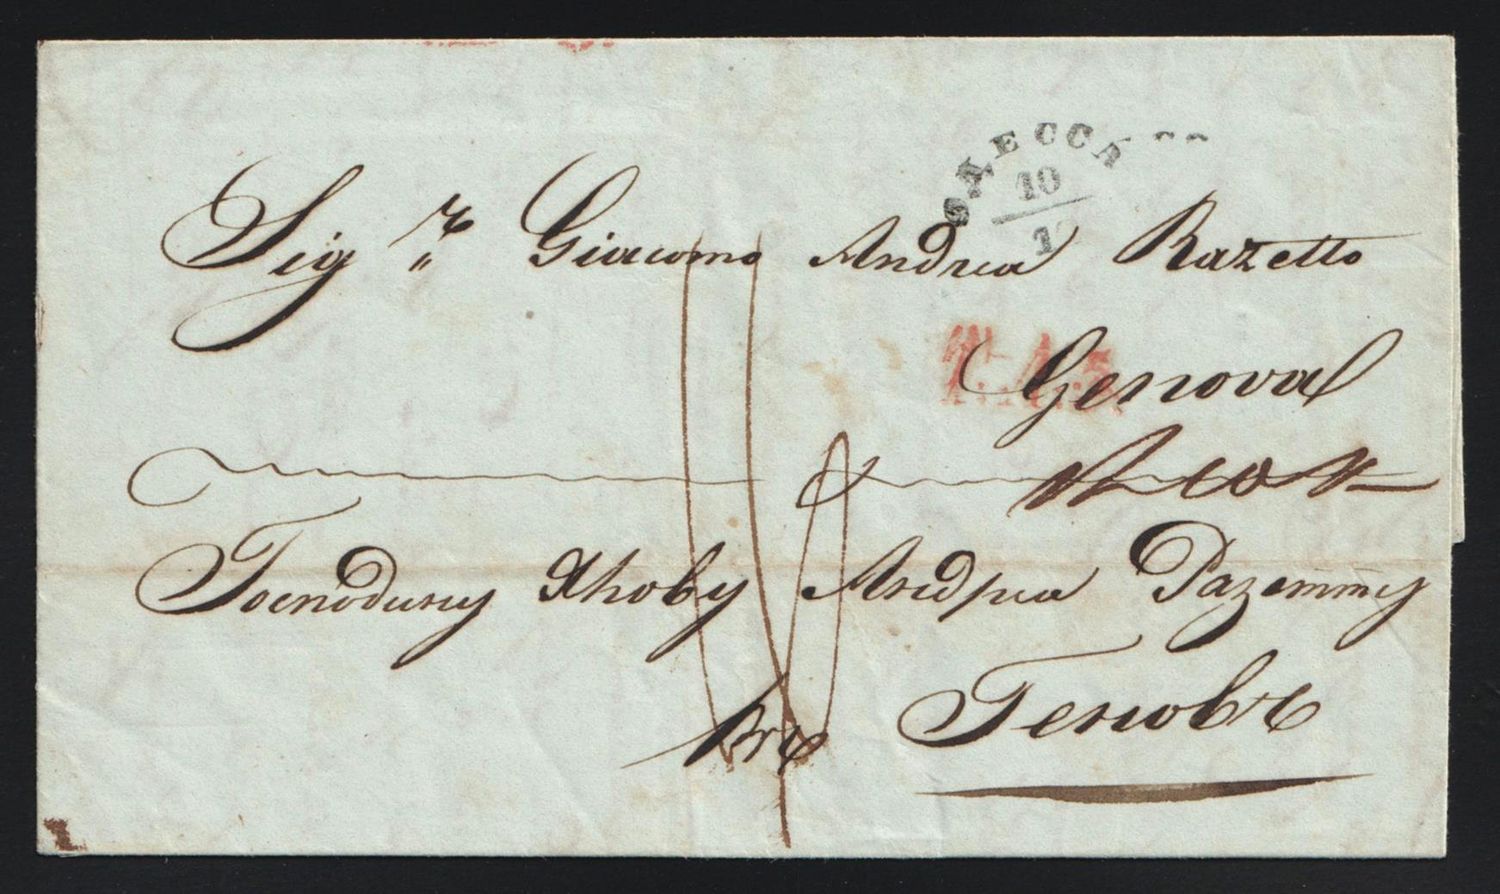 ОДЕССА
10
Sig.re Giacomo Andrea Razetto
T.A.
Genova
Господину Якову Андреа Разетту
въ Геновѣ